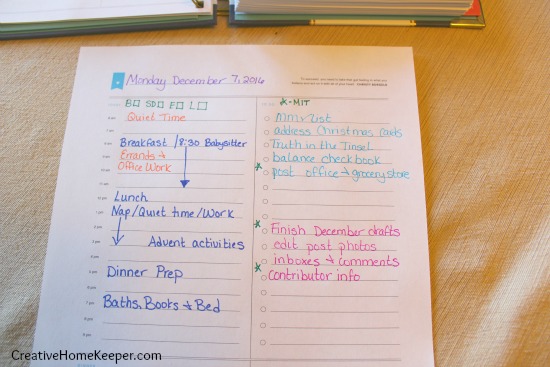 Monday December 7, 2016
B☐ SD☐ F☐ L☐
Quiet Time
Breakfast / 8:30 Babysitter
Errands +
Office Work
Lunch
Nap/Quiet time/Work
Advent activities
Dinner Prep
Baths, Books + Bed
*-MIT
MMV List
address Christmas Cards
Truth in the Tinsel
balance checkbook
* post office + grocery store
* Finish December drafts
edit post photos
inboxes + comments
* Contributor info
CreativeHomeKeeper.com